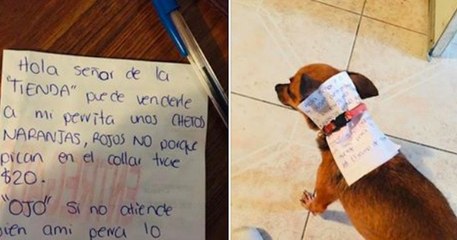 Hola señor de la
"TIENDA" puede venderle
a mi perrita unos CHETOS
NARANJAS, ROJOS NO porque
pican en el collar trae
$20.
"OJO" si no atiende
bien ami perra lo